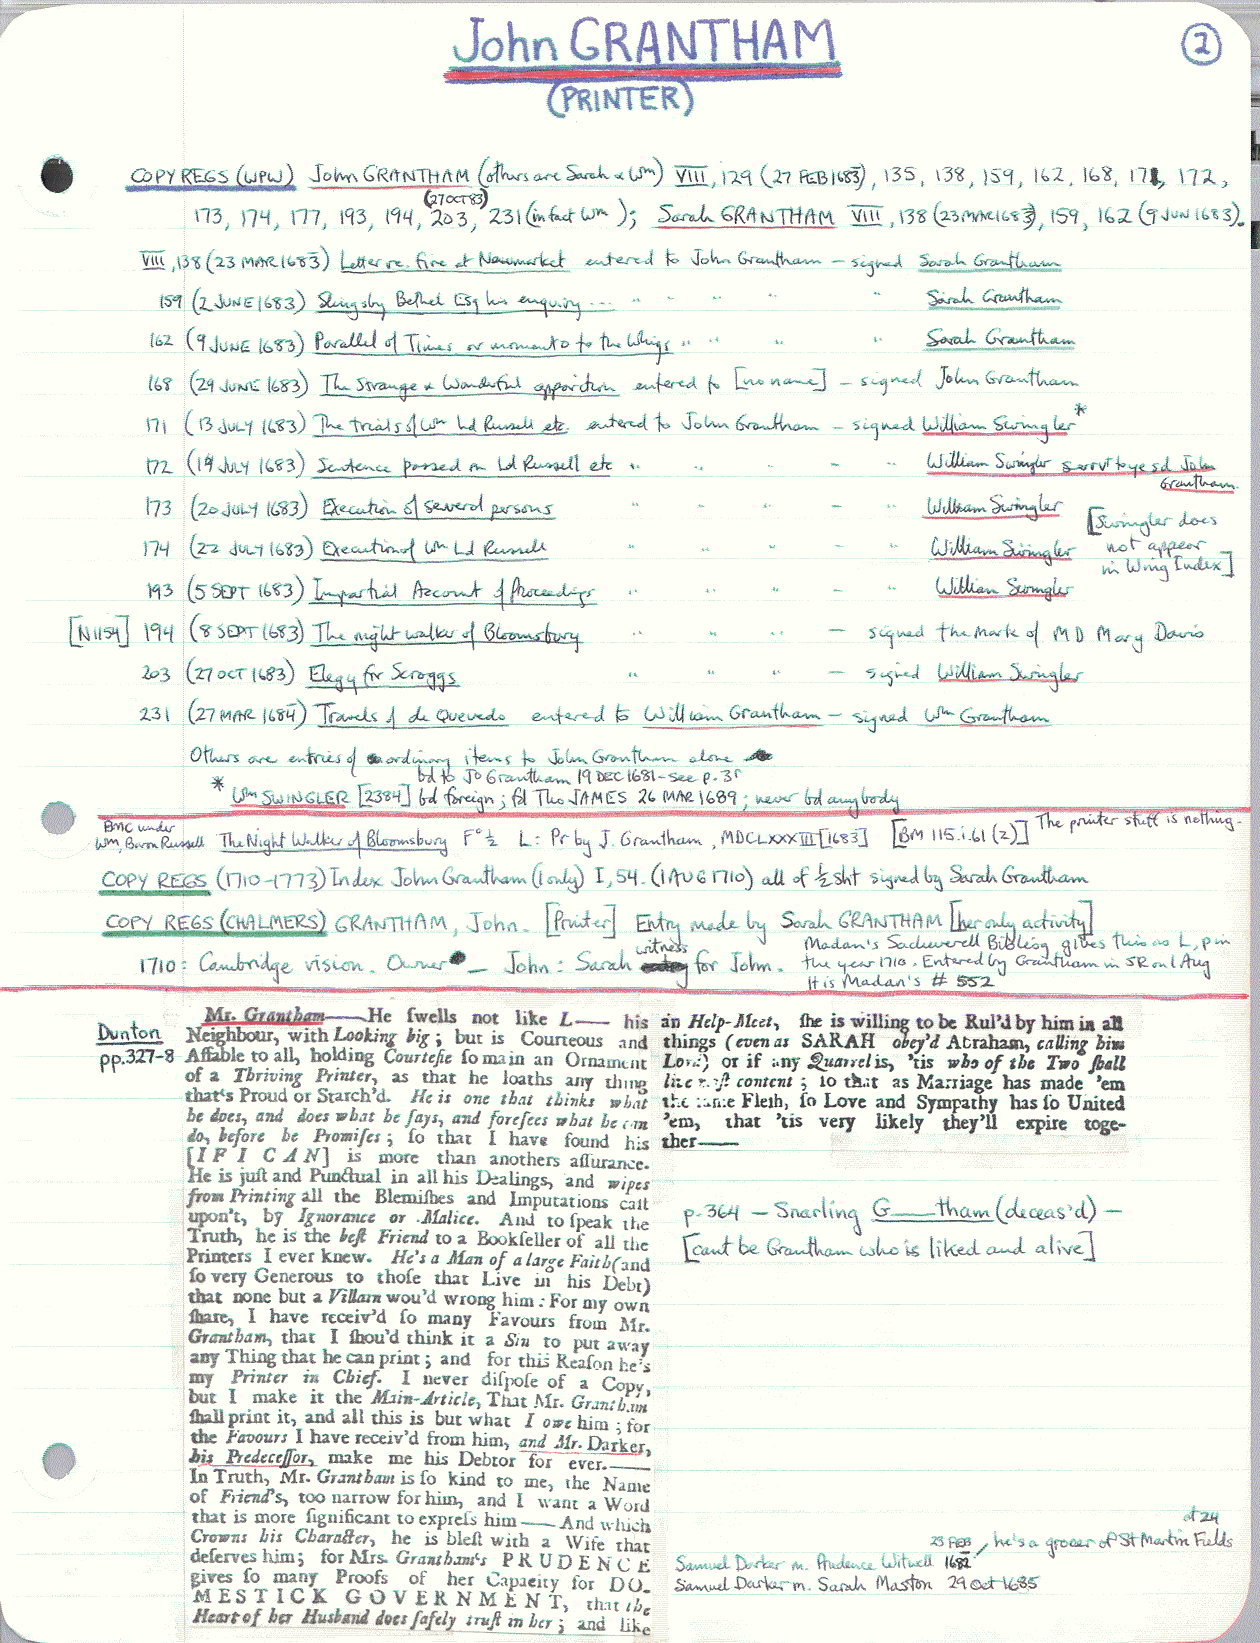 John GRANTHAM
(PRINTER)
2
COPY REGS (WPW) John GRANTHAM (others are Sarah & Wm) VIII, 129 (27 FEB 1683), 135, 138, 159, 162, 168, 171, 172,
(27 OCT 83)
173, 174, 177, 193, 194, 203, 231 (in fact Wm); Sarah GRANTHAM VIII, 138 (23 MAR 1683), 159, 162 (9 JUN 1683).
VIII, 138 (23 MAR 1683) Letter re. fire at Newmarket entered to John Grantham – signed Sarah Grantham
159 (2 JUNE 1683) Slingsby Bethel Esq his enquiry ... " " " " Sarah Grantham
162 (9 JUNE 1683) Parallel of Times or momento to the Whigs " " " " Sarah Grantham
168 (29 JUNE 1683) The Strange & Wonderful apparition entered to [no name] – signed John Grantham
171 (13 JULY 1683) The trials of Wm Ld Russell etc. entered to John Grantham – signed William Swingler*
172 (19 JULY 1683) Sentence passed on Ld Russell etc " " " – " William Swingler servt to ye sd John
Grantham
173 (20 JULY 1683) Execution of several persons " " " – " William Swingler
[Swingler does
not appear
in Wing Index]
174 (22 JULY 1683) Execution of Wm Ld Russell " " " – " William Swingler
193 (5 SEPT 1683) Impartial Account of Proceedings " " " – " William Swingler
[N1154] 194 (8 SEPT 1683) The night walker of Bloomsbury " " " – signed the mark of MD Mary Davis
203 (27 OCT 1683) Elegy for Scroggs " " " – signed William Swingler
231 (27 MAR 1684) Travels of de Quevedo entered to William Grantham – signed Wm Grantham
Others are entries of ordinary items to John Grantham alone
bd to Jo Grantham 19 DEC 1681 – see p. 3r
* Wm SWINGLER [2384] bd foreign; fd Tho JAMES 26 MAR 1689; never bd anybody
BMC under
Wm, Baron Russell The Night Walker of Bloomsbury F° ½ L: Pr by J. Grantham, MDCLXXXIII [1683] [BM 115.i.61 (2)] The printer stuff is nothing.
COPY REGS (1710-1773) Index John Grantham (1 only) I, 54. (1 AUG 1710) all of ½ sht signed by Sarah Grantham
COPY REGS (CHALMERS) GRANTHAM, John. [Printer] Entry made by Sarah GRANTHAM [her only activity]
1710: Cambridge vision. Owner – John: Sarah witness for John.
Madan's Sacheverell Bibliog gives this as L, p in
the year 1710. Entered by Grantham in SR on 1 Aug
It is Madan's # 552
Dunton
pp. 327-8
Mr. Grantham——He ſwells not like L—— his
Neighbour, with Looking big; but is Courteous and
Affable to all, holding Courteſie ſo main an Ornament
of a Thriving Printer, as he loaths any thing
that's Proud or Starch'd. He is one that thinks what
he does, and does what he ſays, and foreſees what he can
do, before he Promiſes; ſo that I have found his
[IF I CAN] is more than anothers aſſurance.
He is juſt and Punctual in all his Dealings, and wipes
from Printing all the Blemiſhes and Imputations caſt
upon't, by Ignorance or Malice. And to ſpeak the
Truth, he is the beſt Friend to a Bookſeller of all the
Printers I ever knew. He's a Man of a large Faith (and
ſo very Generous to thoſe that Live in his Debt)
that none but a Villain wou'd wrong him: For my own
ſhare, I have receiv'd ſo many Favours from Mr.
Grantham, that I ſhou'd think it a Sin to put away
any Thing that he can print; and for this Reaſon he's
my Printer in Chief. I never diſpoſe of a Copy,
but I make it the Main-Article, That Mr. Grantham
ſhall print it, and all this is but what I owe him; for
the Favours I have receiv'd from him, and Mr. Darker,
his Predeceſſor, make me his Debtor for ever.——
In Truth, Mr. Grantham is ſo kind to me, the Name
of Friend's, too narrow for him, and I want a Word
that is more ſignificant to expreſs him——And which
Crowns his Character, he is bleſt with a Wife that
deſerves him; for Mrs. Grantham's PRUDENCE
gives ſo many Proofs of her Capacity for DO-
MESTICK GOVERNMENT, that the
Heart of her Husband does ſafely truſt in her; and like
an Help-Meet, ſhe is willing to be Rul'd by him in all
things (even as SARAH obey'd Abraham, calling him
Lord) or if any Quarrel is, 'tis who of the Two ſhall
content; ſo that as Marriage has made 'em
the ſame Fleſh, ſo Love and Sympathy has ſo United
'em, that 'tis very likely they'll expire toge-
ther——
p. 364 – Snarling G——tham (deceas'd) –
[cant be Grantham who is liked and alive]
at 24
23 FEB he's a grocer of St Martin Fields
Samuel Darker m. Prudence Witwell 1682
Samuel Darker m. Sarah Maston 29 Oct 1685